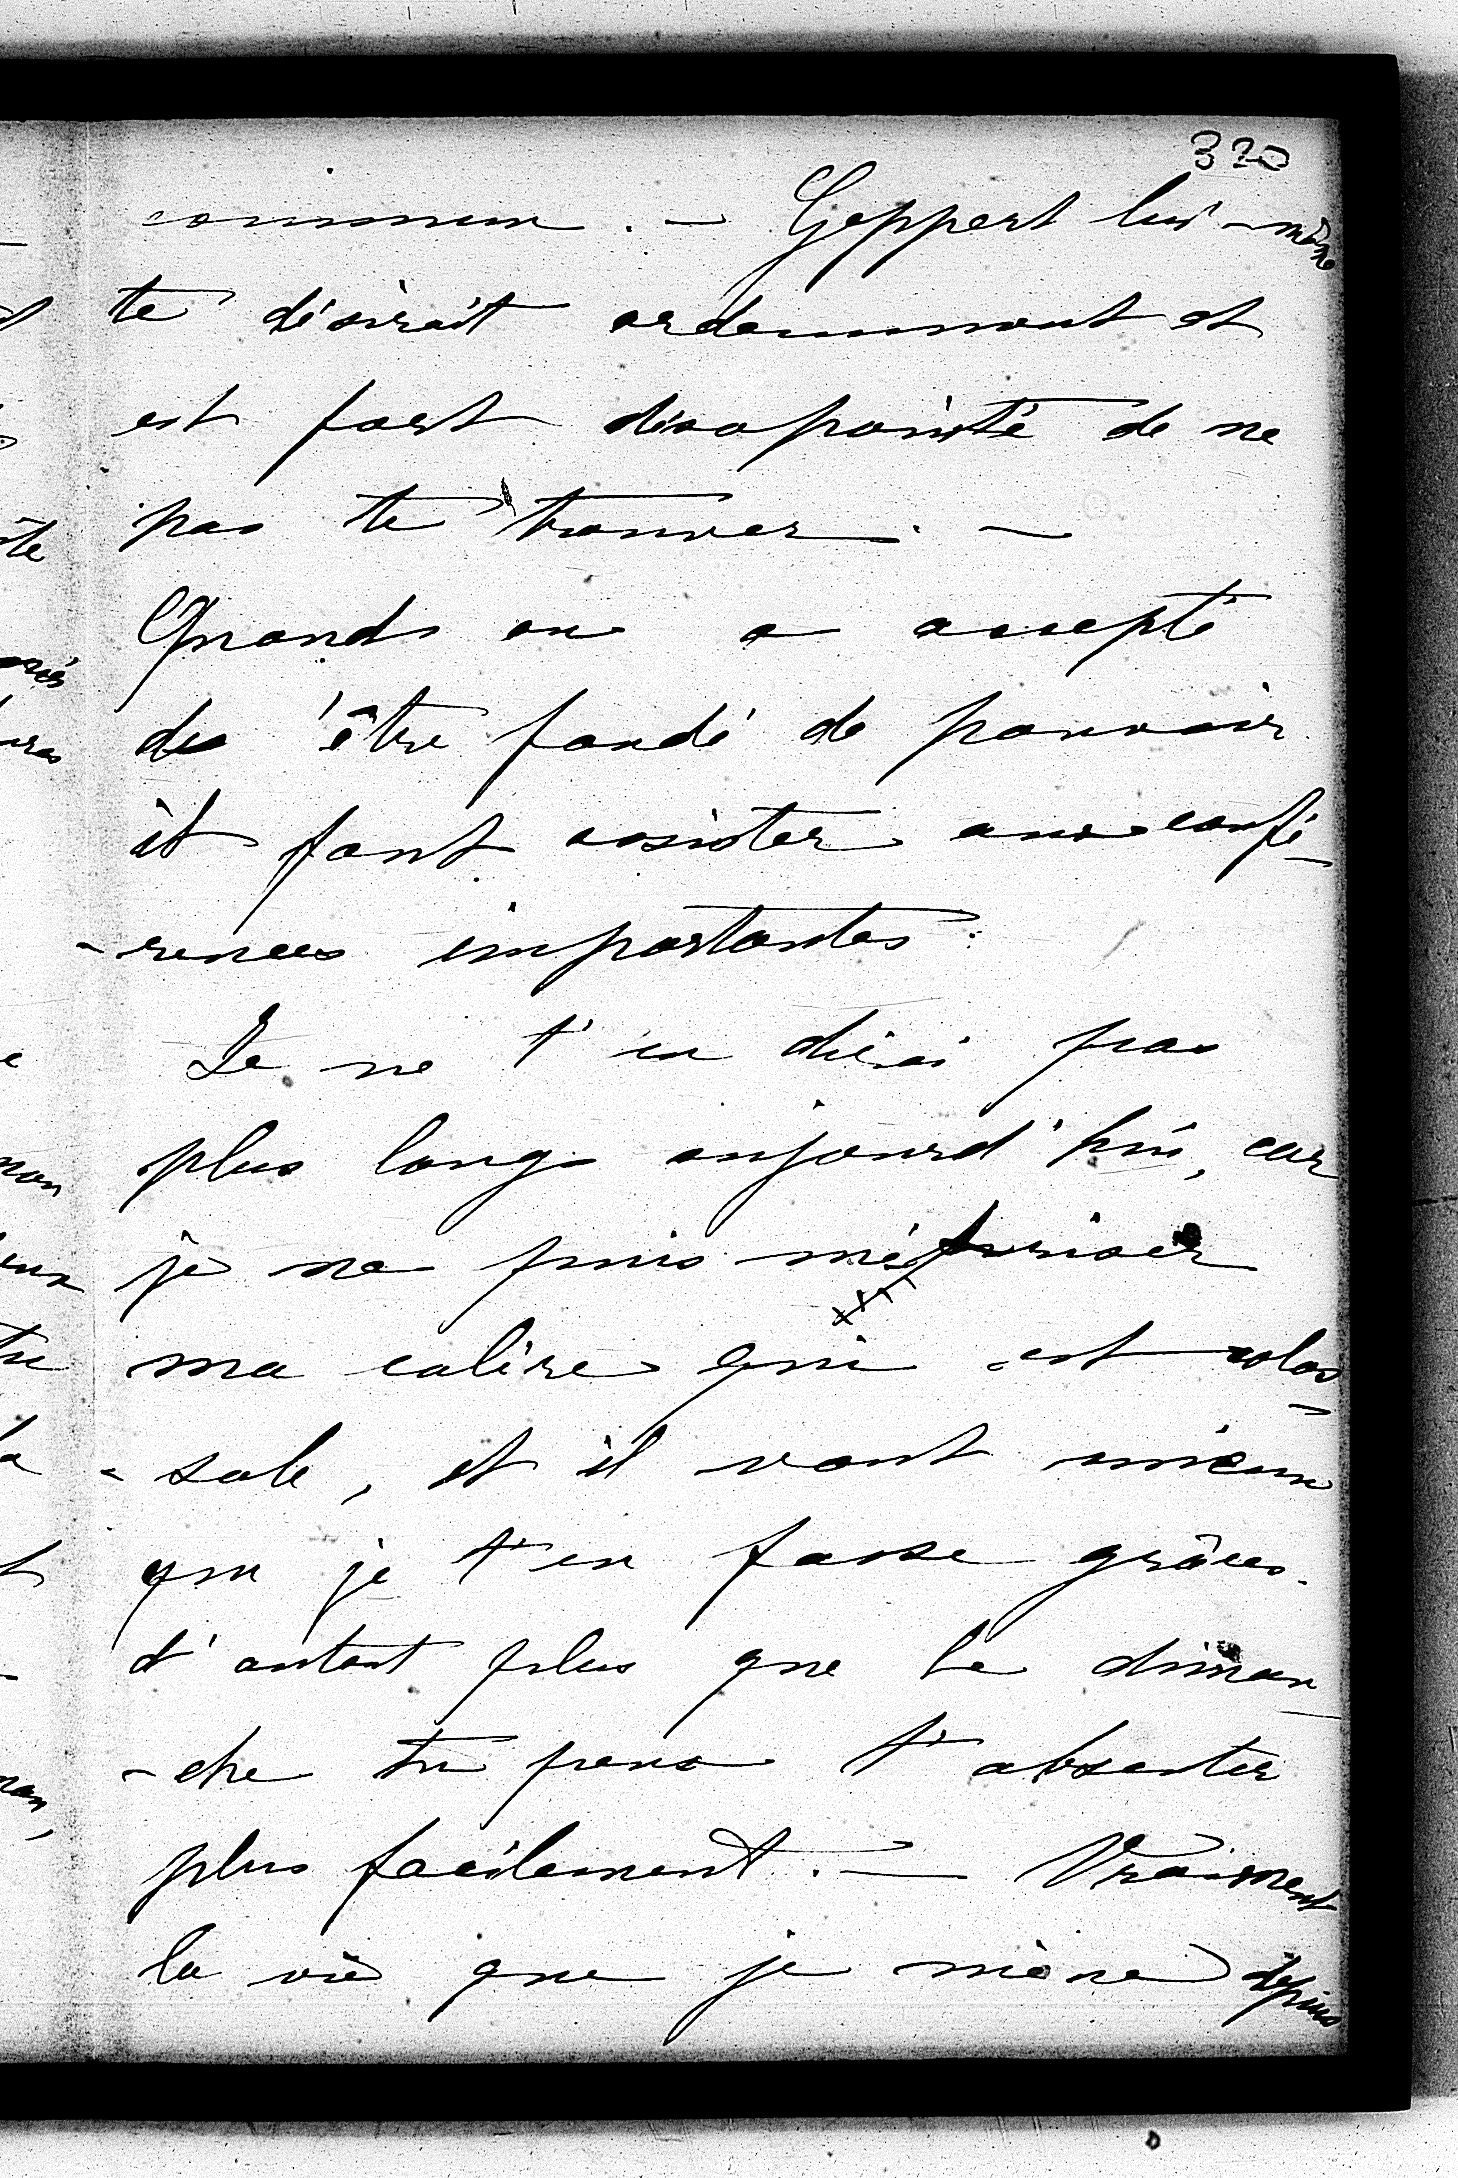 320
commun. — Geppert lui-même
te désirait ardemment et
est fort désapointé de ne
pas te trouver. —
Quand on a accepté
d'être fondé de pouvoir
il faut assister aux confé-
-rences importantes.
Je ne t'en dirai pas
plus long aujourd'hui, car
je ne puis
ma colère qui est colos-
-sale, et il vaut mieux
que je t'en fasse grâces.
d'autant plus que le diman-
-che tu peux t'absenter
plus facilement. — Vraiment
la vie que je mène depuis